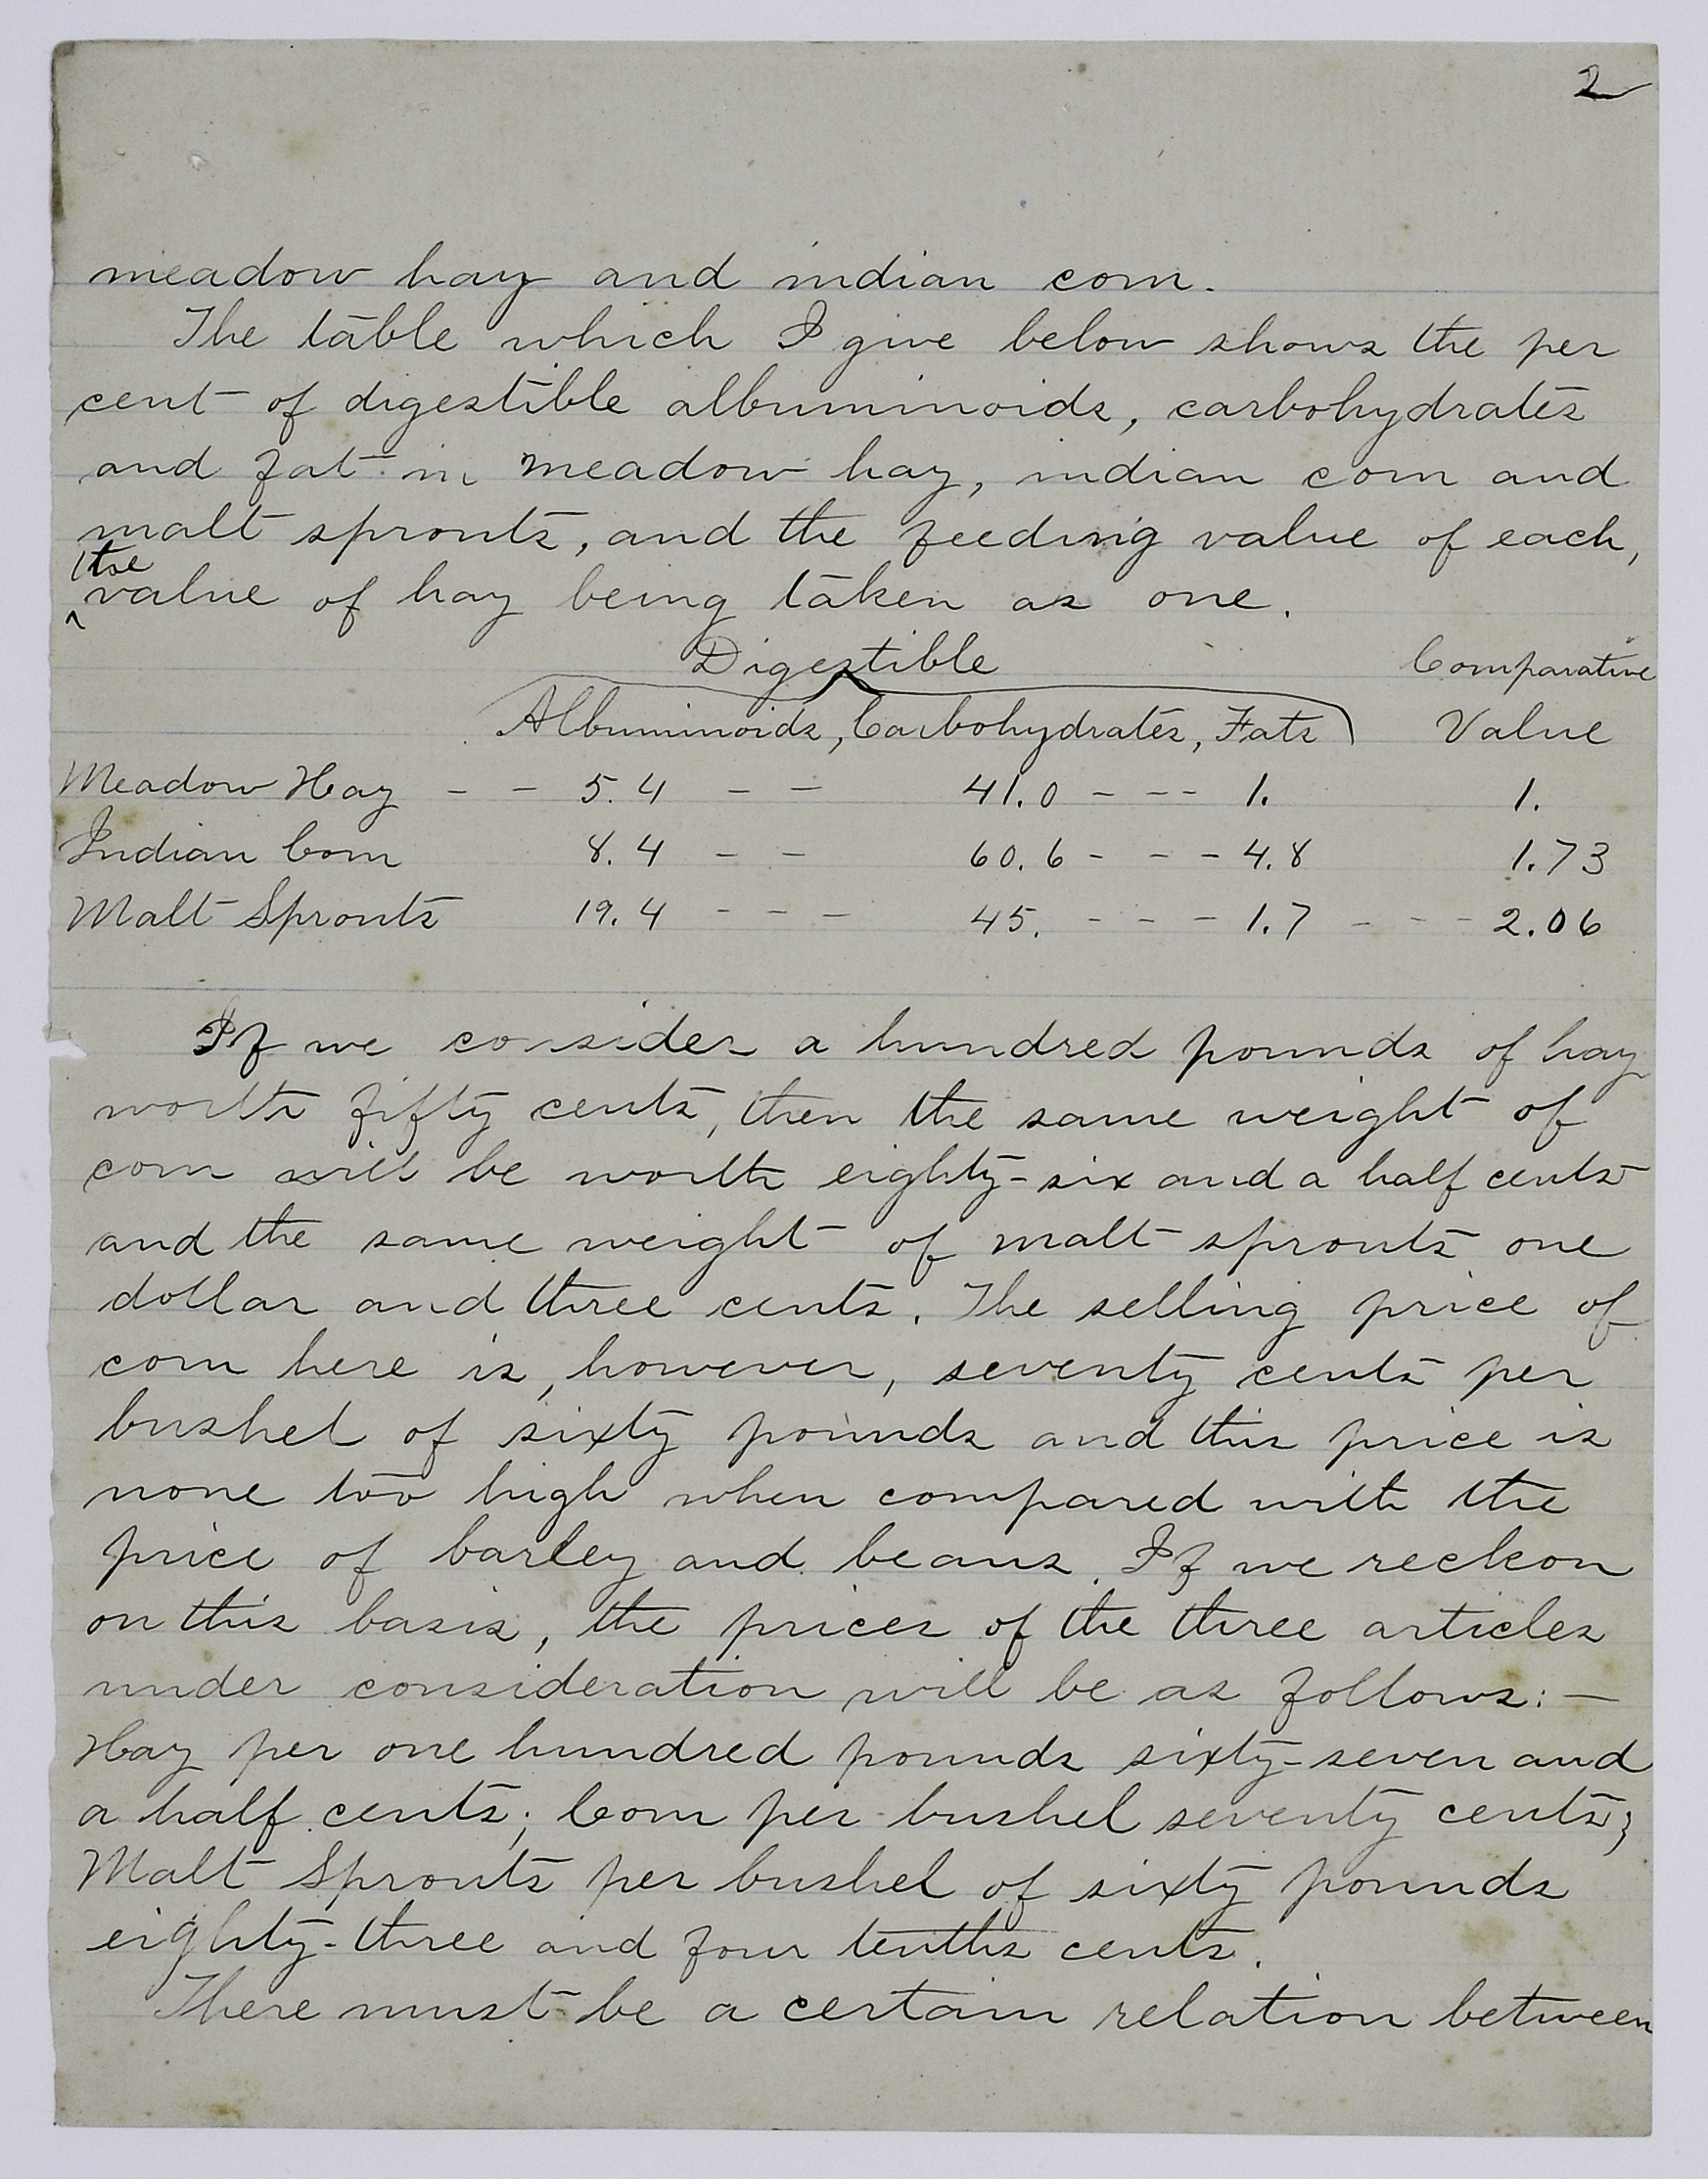 2
meadow hay and indian corn.
The table which I give below shows the per
cent of digestible albuminoids, carbohydrates
and fat in meadow hay, indian corn and
malt sprouts, and the feeding value of each,
the
^value of hay being taken as one.
Digestible Comparative
Albuminoids, Carbohydrates, Fats Value
Meadow Hay - - 5.4 - - 41.0 - - - 1. 1.
Indian Corn 8.4 - - 60.6 - - - 4.8 1.73
Malt Sprouts 19.4 - - - 45. - - - 1.7 - - - 2.06
If we consider a hundred pounds of hay
worth fifty cents, then the same weight of
corn will be worth eighty-six and a half cents
and the same weight of malt sprouts one
dollar and three cents. The selling price of
corn here is, however, seventy cents per
bushel of sixty pounds and this price is
none too high when compared with the
price of barley and beans. If we reckon
on this basis, the prices of the three articles
under consideration will be as follows: —
Hay per one hundred pounds sixty-seven and
a half cents; Corn per bushel seventy cents;
Malt Sprouts per bushel of sixty pounds
eighty-three and four tenths cents.
There must be a certain relation between